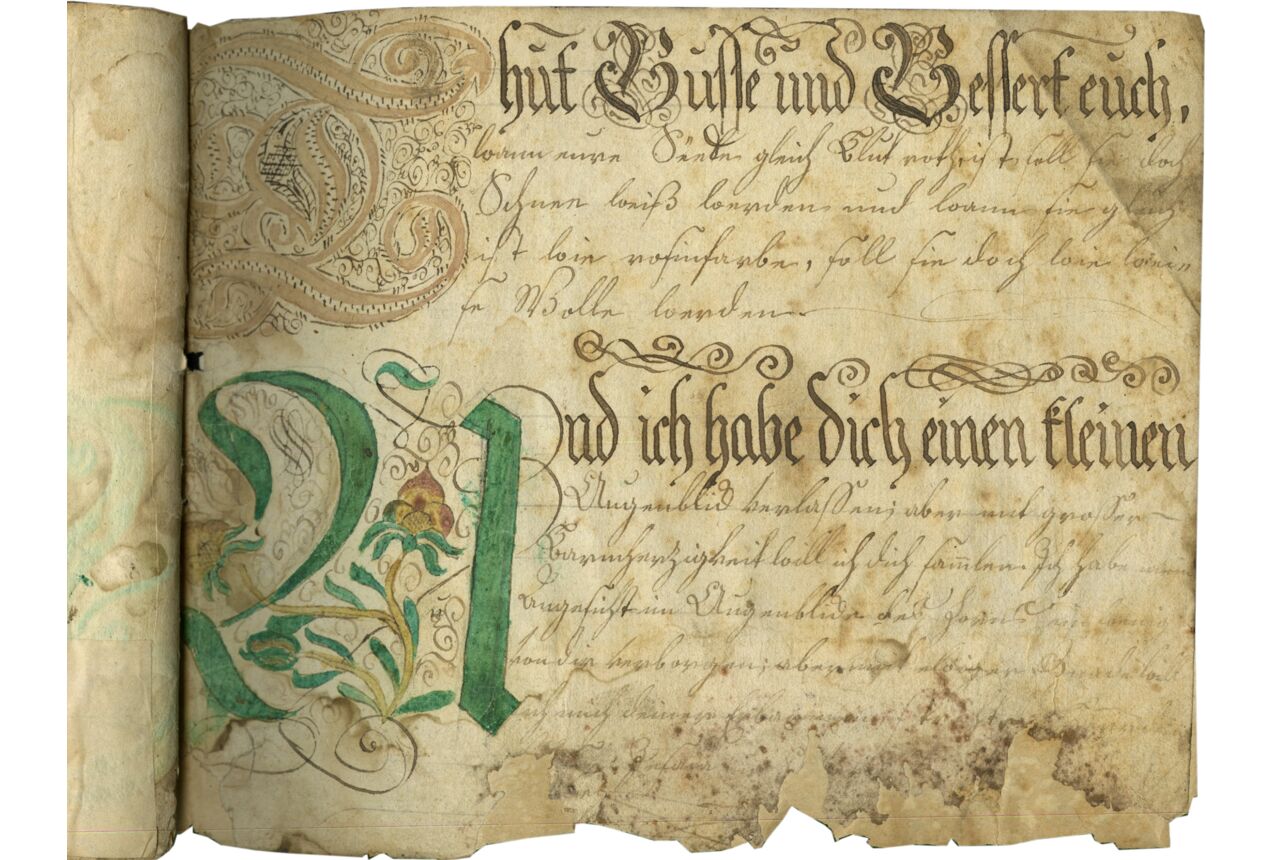 Thut Busse und Bessert euch,
wann eure Seele gleich Blut roth ist, soll sie doch
Schnee weiß werden und wann sie gleich
ist wie rosinfarbe, soll sie doch wie weis
se Wolle werden
Und ich habe dich einen kleinen
Augenblick verlassen; aber mit grosser
Barmherzigkeit will ich dich samlen. Ich habe mein
Angesicht im Augenblick des Zorns ein wenig
von dir verborgen; aber mit ewiger Gnade will
ich mich deiner